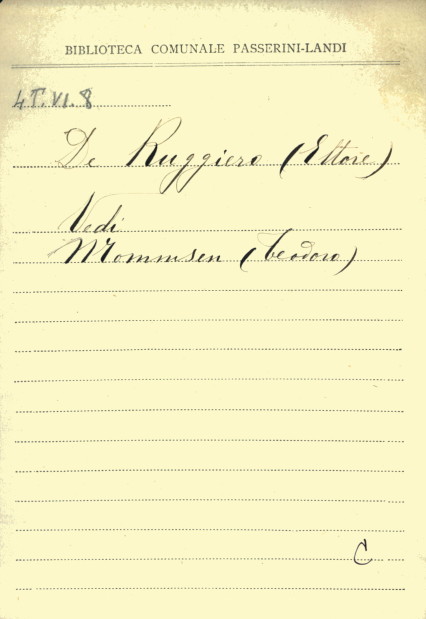 BIBLIOTECA COMUNALE PASSERINI-LANDI
4T.VI.8
De Ruggiero (Ettore)
Vedi
Mommsen (Teodoro)
C